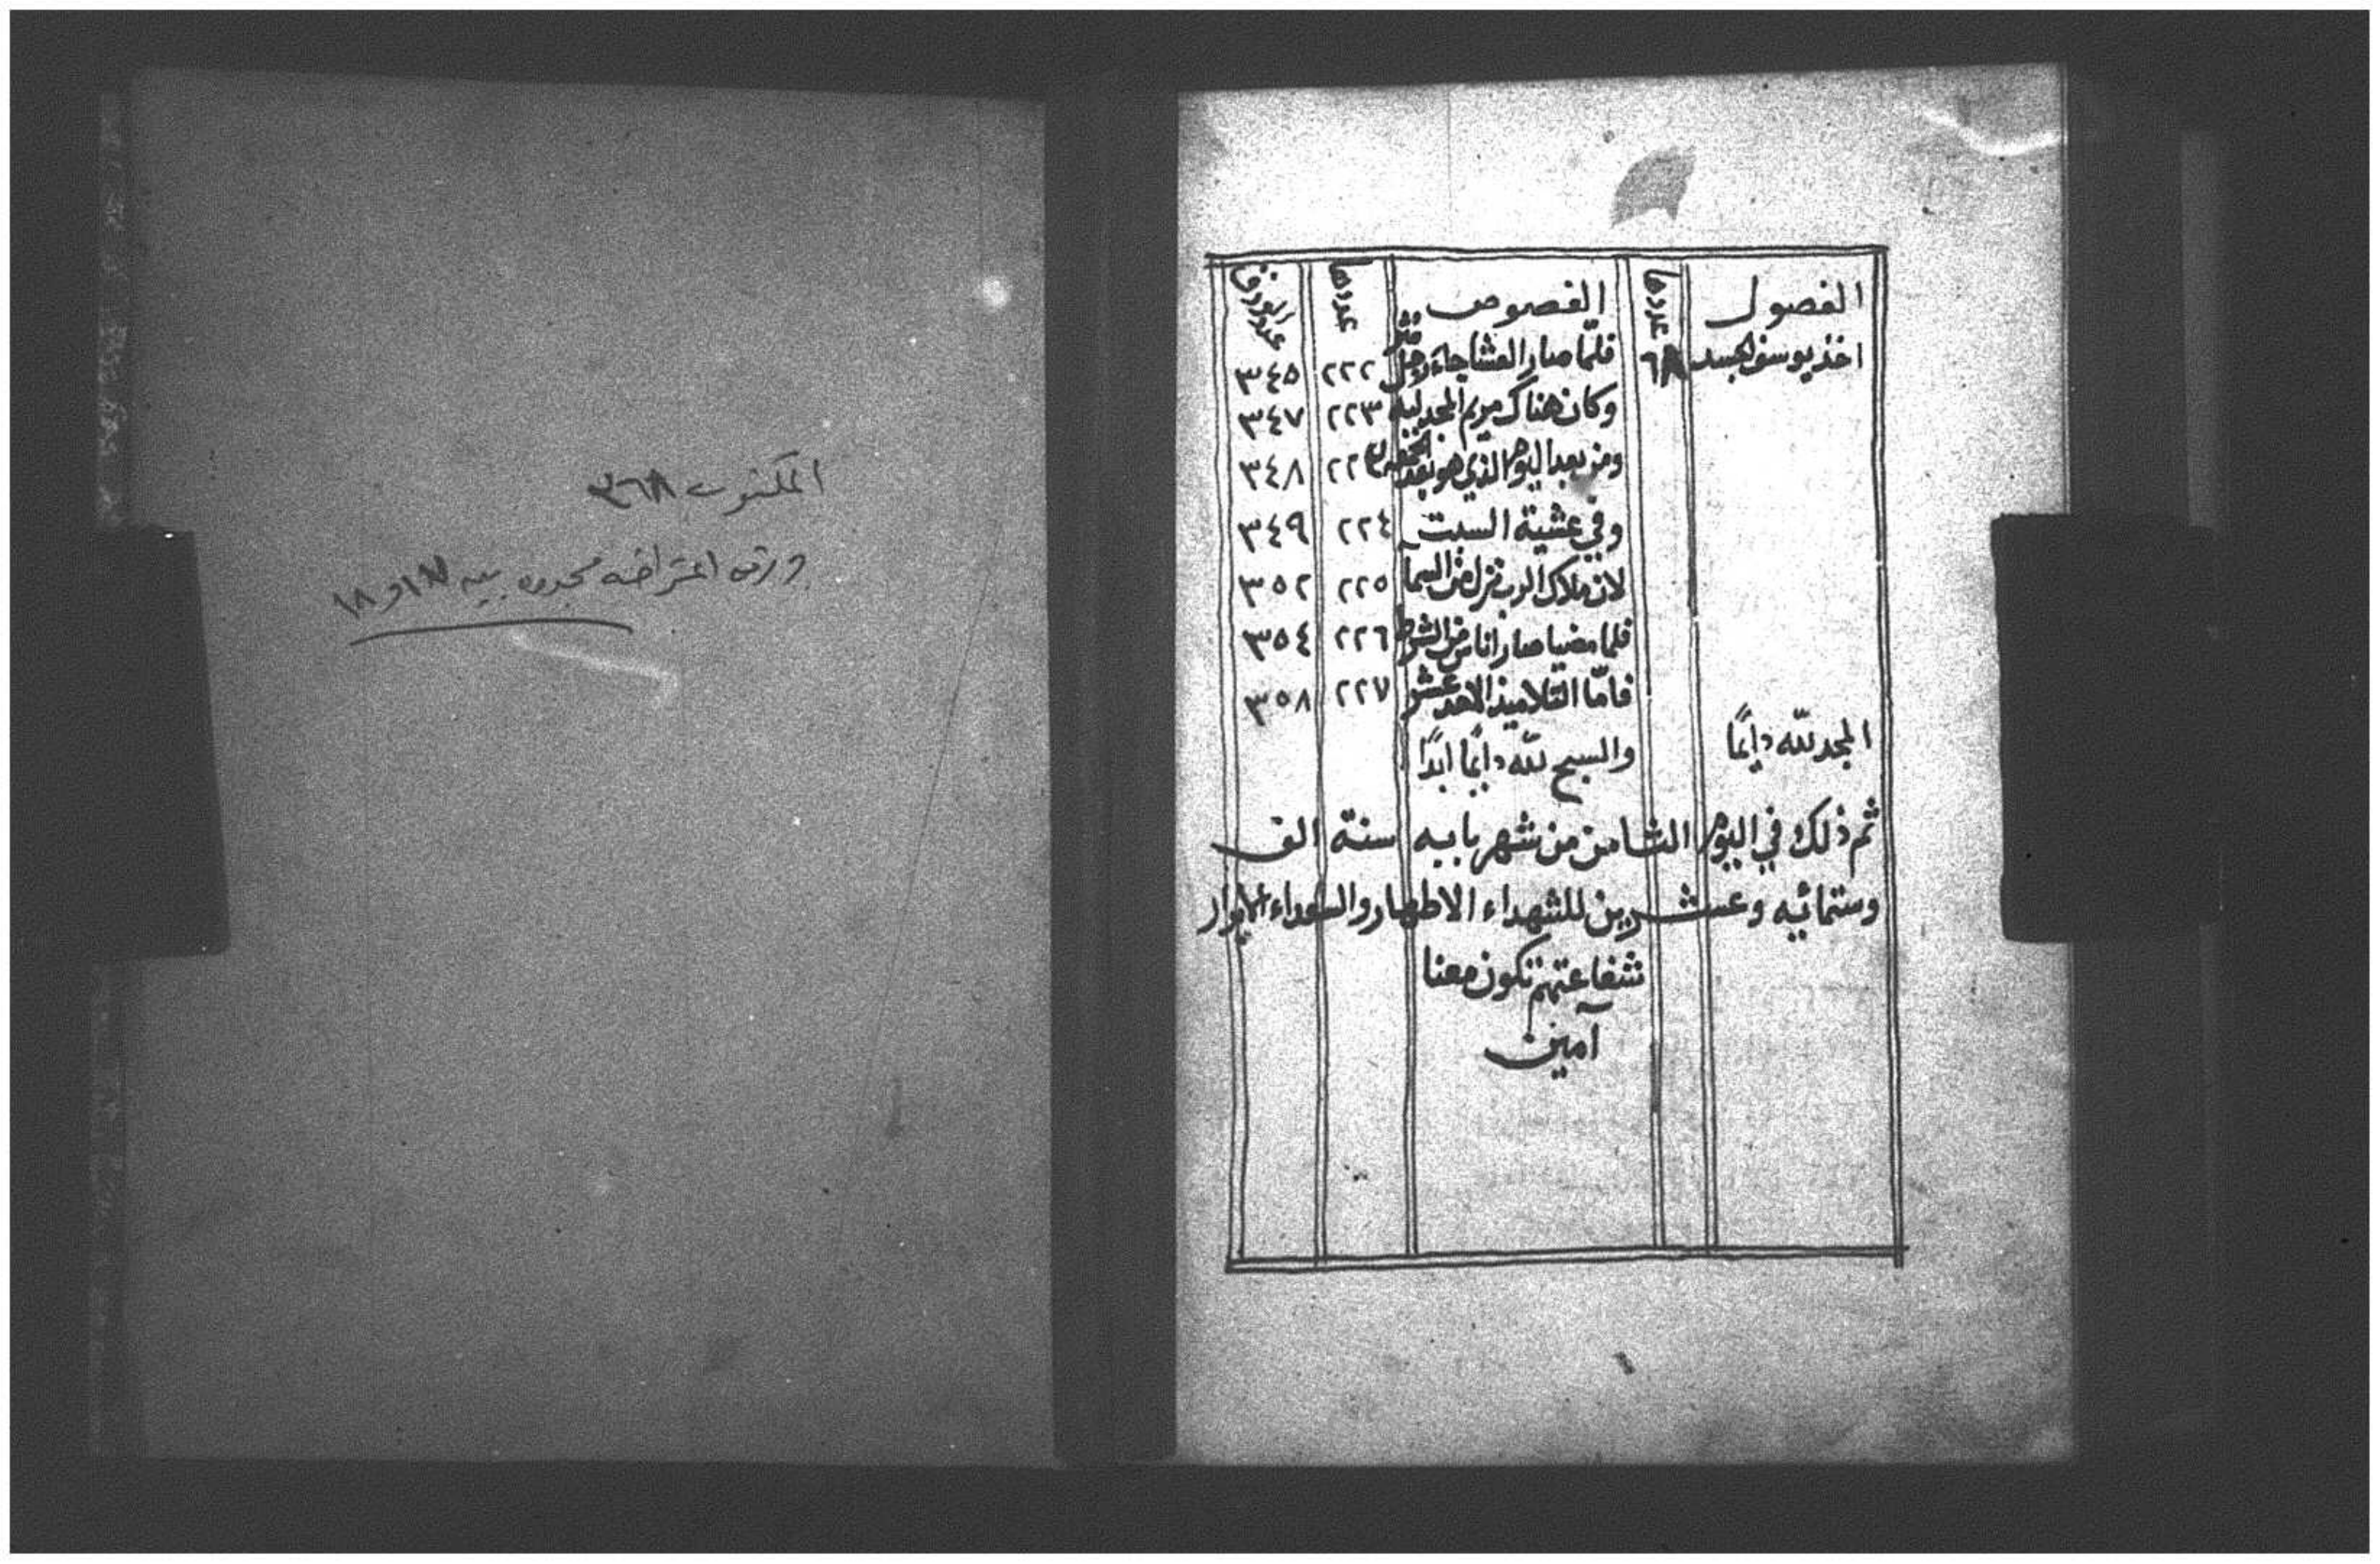 الفصول عددها الفصوص عددها عدد الورق
اخذ يوسف الجسد ٦٨ فلمّا صار العشا جاء رجل ٢٢٢ ٣٤٥
وكان هناك مريم المجدلية ٢٢٣ ٣٤٧
ومن بعد اليوم الذي هو بعد ٣٤٨
وفي عشية السبت ٢٢٤ ٣٤٩
لان ملاك الرب نزل من السمآ ٢٢٥ ٣٥٢
فلما مضيا صار اناس من الشرط ٢٢٦ ٣٥٤
فامّا التلاميذ الاحد عشر ٢٢٧ ٣٥٨
المجد للّه دايمًا والسبح للّه دايمًا ابدًا
ثم ذلك في اليوم الثامن من شهر بابيه سنة الف
وستمائيه وعشرين للشهداء الاطهار والسعداء الابرار
شفاعتهم تكون معنا
آمين
المكتوب ٣٦٨
ورقه اعتراضه بيه